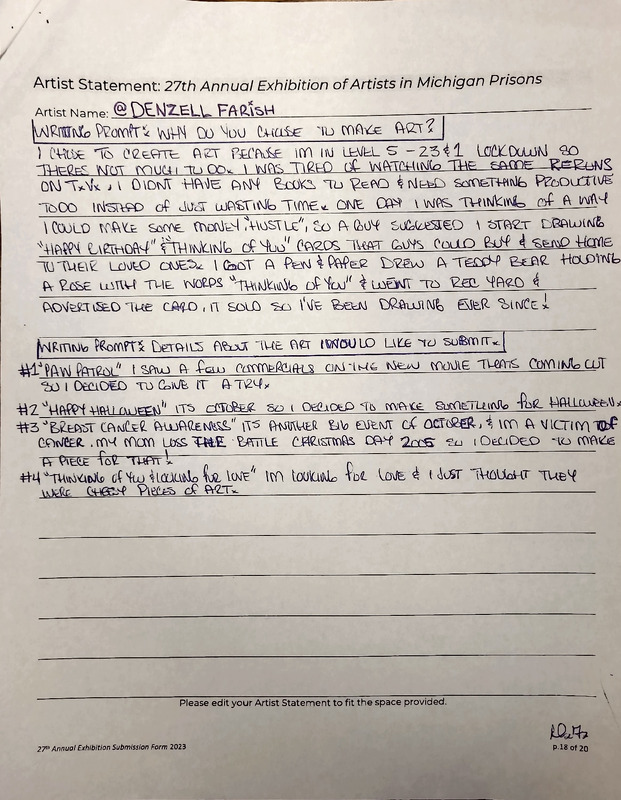 Artist Statement: 27th Annual Exhibition of Artists in Michigan Prisons
Artist Name: @ DENZELL FARISH
WRITING PROMPT: WHY DO YOU CHOOSE TO MAKE ART?
I CHOSE TO CREATE ART BECAUSE IM IN LEVEL 5 - 23 & 1 LOCKDOWN SO
THERES NOT MUCH TO DO. I WAS TIRED OF WATCHING THE SAME RERUNS
ON T.V., I DIDNT HAVE ANY BOOKS TO READ & NEED SOMETHING PRODUCTIVE
TO DO INSTEAD OF JUST WASTING TIME. ONE DAY I WAS THINKING OF A WAY
I COULD MAKE SOME MONEY, "HUSTLE", SO A GUY SUGGESTED I START DRAWING
"HAPPY BIRTHDAY" & "THINKING OF YOU" CARDS THAT GUYS COULD BUY & SEND HOME
TO THEIR LOVED ONES. I GOT A PEN & PAPER DREW A TEDDY BEAR HOLDING
A ROSE WITH THE WORDS "THINKING OF YOU" & WENT TO REC YARD &
ADVERTISED THE CARD, IT SOLD SO I'VE BEEN DRAWING EVER SINCE!
WRITING PROMPT: DETAILS ABOUT THE ART I WOULD LIKE TO SUBMIT.
#1 "PAW PATROL" I SAW A FEW COMMERCIALS ON THE NEW MOVIE THATS COMING OUT
SO I DECIDED TO GIVE IT A TRY.
#2 "HAPPY HALLOWEEN" ITS OCTOBER SO I DECIDED TO MAKE SOMETHING FOR HALLOWEEN.
#3 "BREAST CANCER AWARENESS" ITS ANOTHER BIG EVENT OF OCTOBER, & IM A VICTIM OF
CANCER. MY MOM LOSS THE BATTLE CHRISTMAS DAY 2005 SO I DECIDED TO MAKE
A PIECE FOR THAT!
#4 "THINKING OF YOU & LOOKING FOR LOVE" IM LOOKING FOR LOVE & I JUST THOUGHT THEY
WERE PIECES OF ART.
Please edit your Artist Statement to fit the space provided.
27th Annual Exhibition Submission Form 2023
p.18 of 20